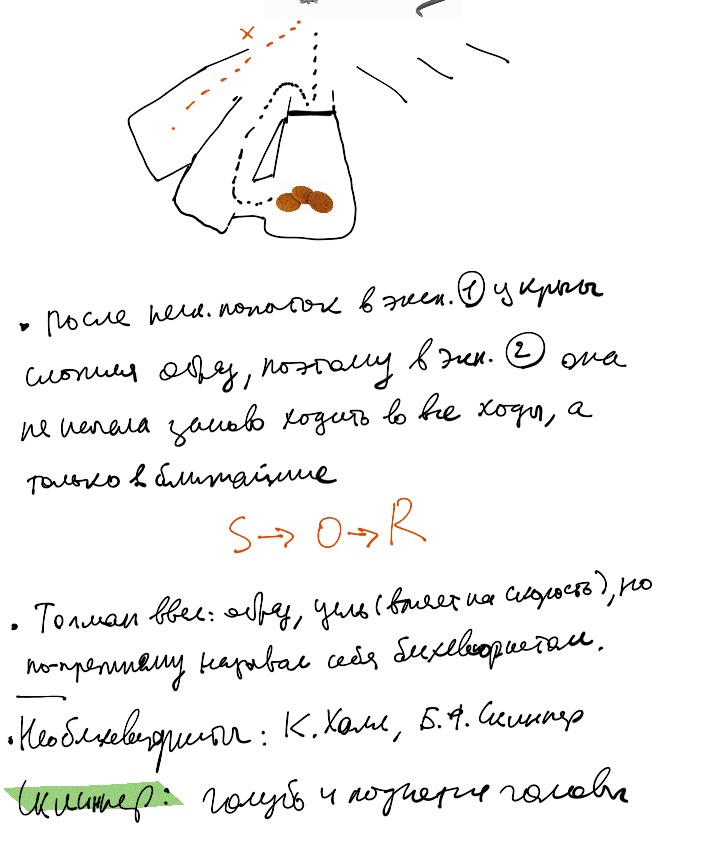 • После неск. попыток в эксп. ① у крысы
сложился образ, поэтому в экп. ② она
не начала заново ходить во все ходы, а
только в ближайшие
S → O → R
• Толман ввёл: образ, цель (влияет на скорость), но
по-прежнему называл себя бихевиористом.
• Необихевиористы: К. Халл, Б.Ф. Скиннер
Скиннер: голубь и поднятие головы